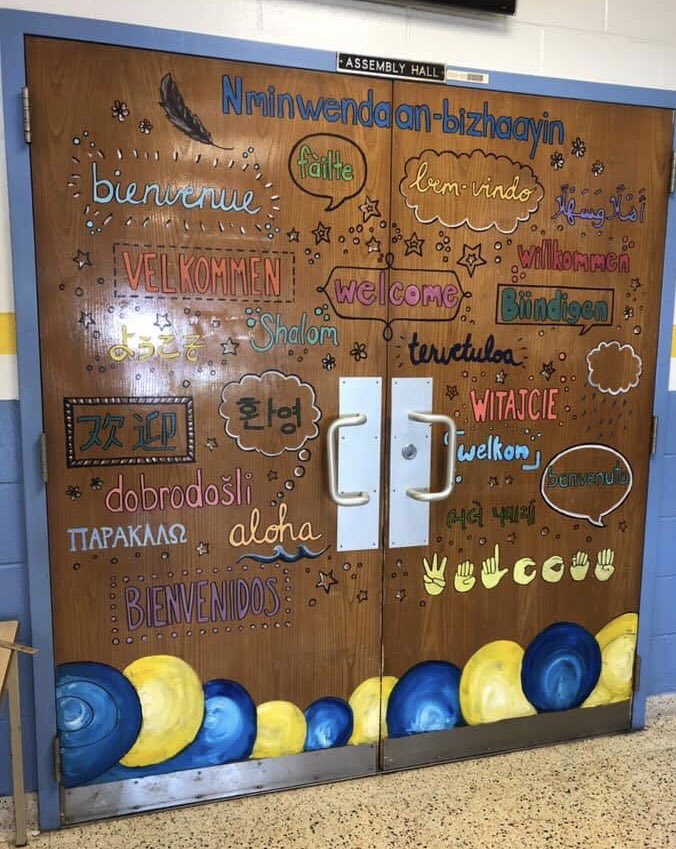 ASSEMBLY HALL
Nminwendaan-bizhaayin
fàilte
bem-vindo
bienvenue
willkommen
VELKOMMEN
welcome
Biindigen
ようこそ
Shalom
tervetuloa
WITAJCIE
欢迎
환영
welkom
benvenuto
dobrodošli
ΠΑΡΑΚΑΛΩ
aloha
BIENVENIDOS